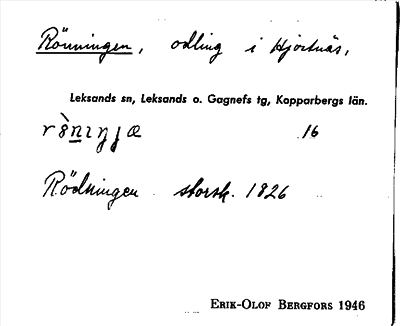 Rönningen, odling i Hjortnäs,
Leksands sn, Leksands o. Gagnefs tg, Kopparbergs län.
16
Rödningen storsk. 1826
Erik-Olof Bergfors 1946